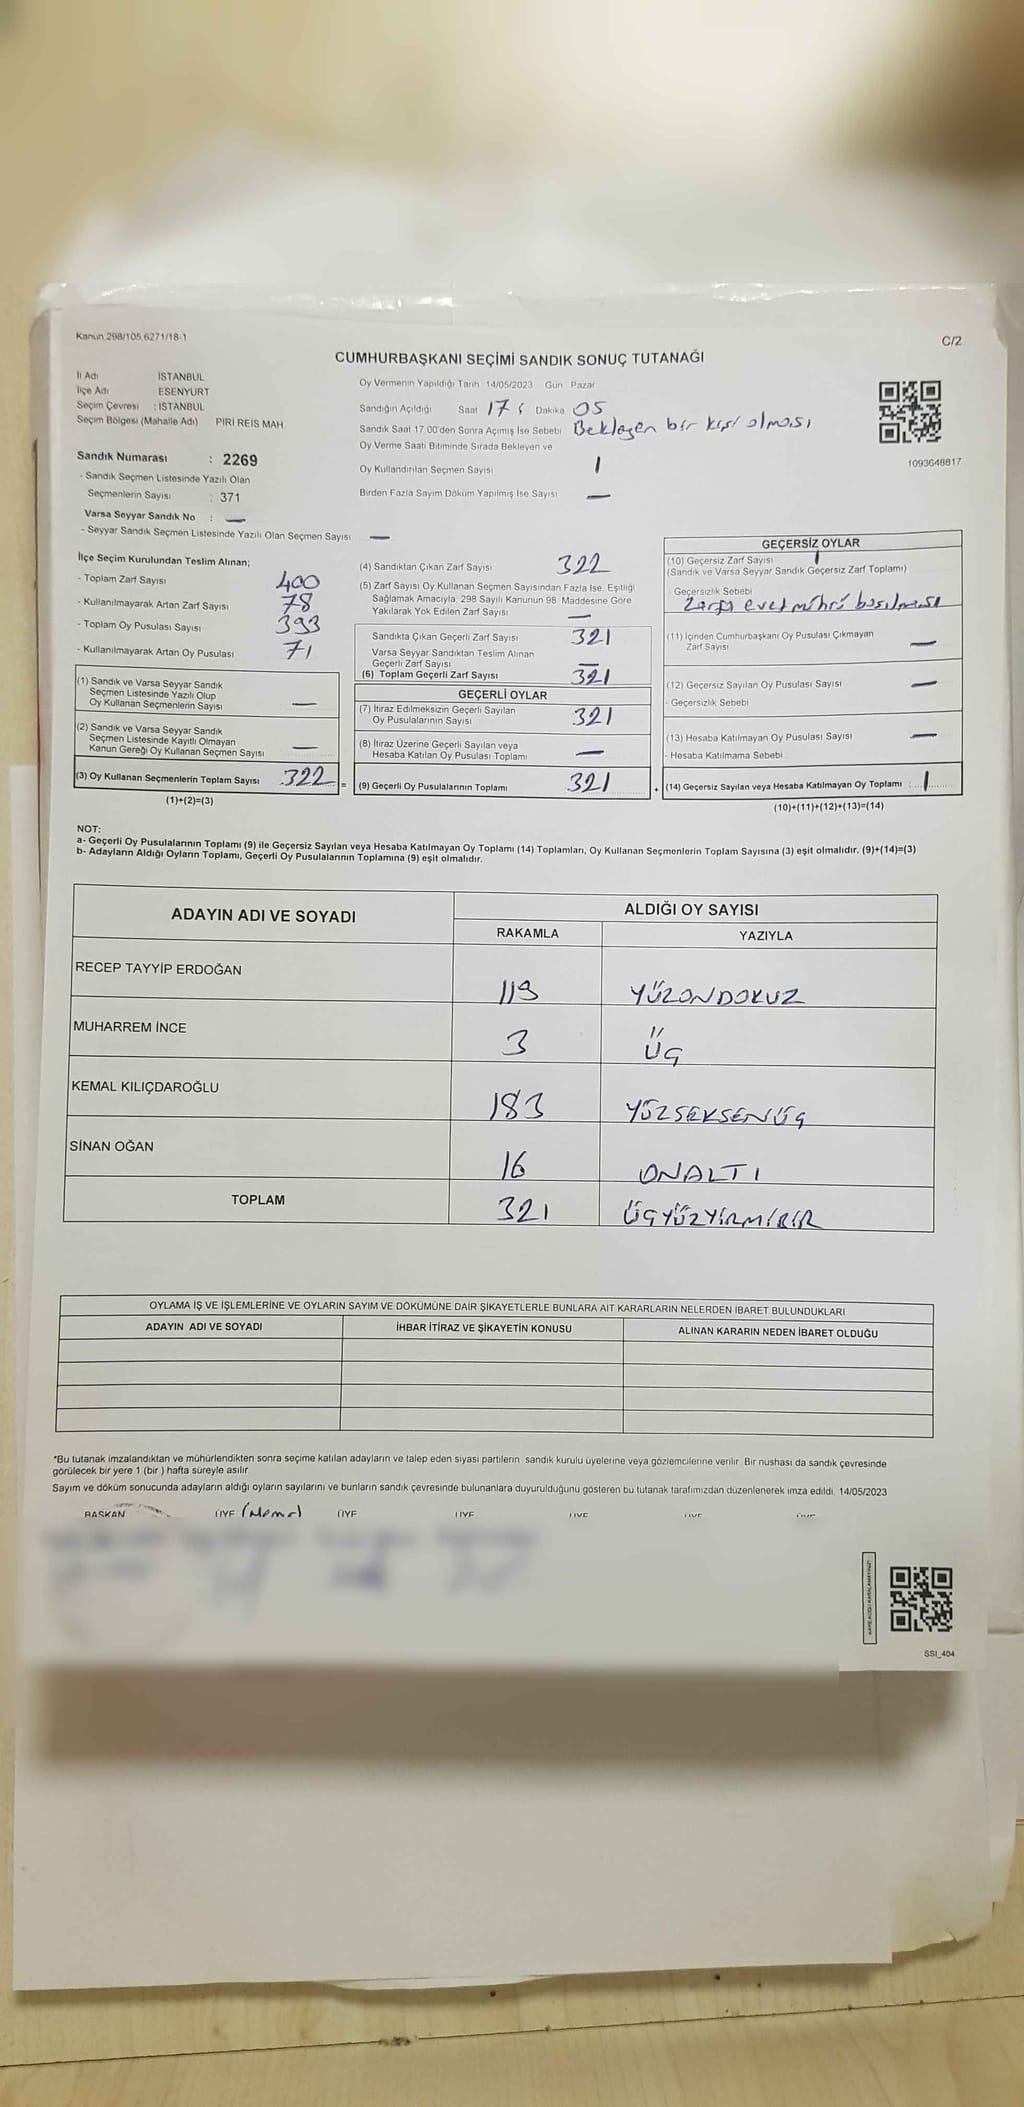 Kanun.298/105,6271/18-1
C/2
CUMHURBAŞKANI SEÇİMİ SANDIK SONUÇ TUTANAĞI
İl Adı İSTANBUL
İlçe Adı ESENYURT
Seçim Çevresi : İSTANBUL
Seçim Bölgesi (Mahalle Adı) PİRİ REİS MAH
Sandık Numarası : 2269
- Sandık Seçmen Listesinde Yazılı Olan
Seçmenlerin Sayısı : 371
Varsa Seyyar Sandık No : —
- Seyyar Sandık Seçmen Listesinde Yazılı Olan Seçmen Sayısı —
Oy Vermenin Yapıldığı Tarih 14/05/2023 Gün Pazar
Sandığın Açıldığı Saat 17 : Dakika 05
Sandık Saat 17.00'den Sonra Açımış İse Sebebi Bekleyen bir kişi olması
Oy Verme Saati Bitiminde Sırada Bekleyen ve
Oy Kullandırılan Seçmen Sayısı 1
Birden Fazla Sayım Döküm Yapılmış İse Sayısı —
1093648817
İlçe Seçim Kurulundan Teslim Alınan;
- Toplam Zarf Sayısı 400
- Kullanılmayarak Artan Zarf Sayısı 78
- Toplam Oy Pusulası Sayısı 393
- Kullanılmayarak Artan Oy Pusulası 71
(1) Sandık ve Varsa Seyyar Sandık
Seçmen Listesinde Yazılı Olup
Oy Kullanan Seçmenlerin Sayısı —
(2) Sandık ve Varsa Seyyar Sandık
Seçmen Listesinde Kayıtlı Olmayan
Kanun Gereği Oy Kullanan Seçmen Sayısı —
(3) Oy Kullanan Seçmenlerin Toplam Sayısı 322 =
(1)+(2)=(3)
(4) Sandıktan Çıkan Zarf Sayısı 322
(5) Zarf Sayısı Oy Kullanan Seçmen Sayısından Fazla İse, Eşitliği
Sağlamak Amacıyla; 298 Sayılı Kanunun 98. Maddesine Göre
Yakılarak Yok Edilen Zarf Sayısı —
Sandıkta Çıkan Geçerli Zarf Sayısı 321
Varsa Seyyar Sandıktan Teslim Alınan
Geçerli Zarf Sayısı —
(6) Toplam Geçerli Zarf Sayısı 321
GEÇERLİ OYLAR
(7) İtiraz Edilmeksizin Geçerli Sayılan
Oy Pusulalarının Sayısı 321
(8) İtiraz Üzerine Geçerli Sayılan veya
Hesaba Katılan Oy Pusulası Toplamı —
(9) Geçerli Oy Pusulalarının Toplamı 321 +
GEÇERSİZ OYLAR
(10) Geçersiz Zarf Sayısı 1
(Sandık ve Varsa Seyyar Sandık Geçersiz Zarf Toplamı)
- Geçersizlik Sebebi
Zarfa evet mührü basılması
(11) İçinden Cumhurbaşkanı Oy Pusulası Çıkmayan
Zarf Sayısı —
(12) Geçersiz Sayılan Oy Pusulası Sayısı —
- Geçersizlik Sebebi
(13) Hesaba Katılmayan Oy Pusulası Sayısı —
- Hesaba Katılmama Sebebi
(14) Geçersiz Sayılan veya Hesaba Katılmayan Oy Toplamı : 1
(10)+(11)+(12)+(13)=(14)
NOT:
a- Geçerli Oy Pusulalarının Toplamı (9) ile Geçersiz Sayılan veya Hesaba Katılmayan Oy Toplamı (14) Toplamları, Oy Kullanan Seçmenlerin Toplam Sayısına (3) eşit olmalıdır. (9)+(14)=(3)
b- Adayların Aldığı Oyların Toplamı, Geçerli Oy Pusulalarının Toplamına (9) eşit olmalıdır.
ADAYIN ADI VE SOYADI
ALDIĞI OY SAYISI
RAKAMLA YAZIYLA
RECEP TAYYİP ERDOĞAN 119 YÜZONDOKUZ
MUHARREM İNCE 3 ÜÇ
KEMAL KILIÇDAROĞLU 183 YÜZSEKSENÜÇ
SİNAN OĞAN 16 ONALTI
TOPLAM 321 ÜÇYÜZYİRMİBİR
OYLAMA İŞ VE İŞLEMLERİNE VE OYLARIN SAYIM VE DÖKÜMÜNE DAİR ŞİKAYETLERLE BUNLARA AİT KARARLARIN NELERDEN İBARET BULUNDUKLARI
ADAYIN ADI VE SOYADI İHBAR İTİRAZ VE ŞİKAYETİN KONUSU ALINAN KARARIN NEDEN İBARET OLDUĞU
*Bu tutanak imzalandıktan ve mühürlendikten sonra seçime katılan adayların ve talep eden siyasi partilerin sandık kurulu üyelerine veya gözlemcilerine verilir. Bir nushası da sandık çevresinde
görülecek bir yere 1 (bir ) hafta süreyle asılır.
Sayım ve döküm sonucunda adayların aldığı oyların sayılarını ve bunların sandık çevresinde bulunanlara duyurulduğunu gösteren bu tutanak tarafımızdan düzenlenerek imza edildi. 14/05/2023
BAŞKAN ÜYE (Memur) ÜYE ÜYE ÜYE ÜYE ÜYE
SSI_404